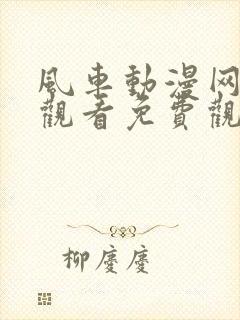 風車動漫网
觀看免費觀
柳慶慶